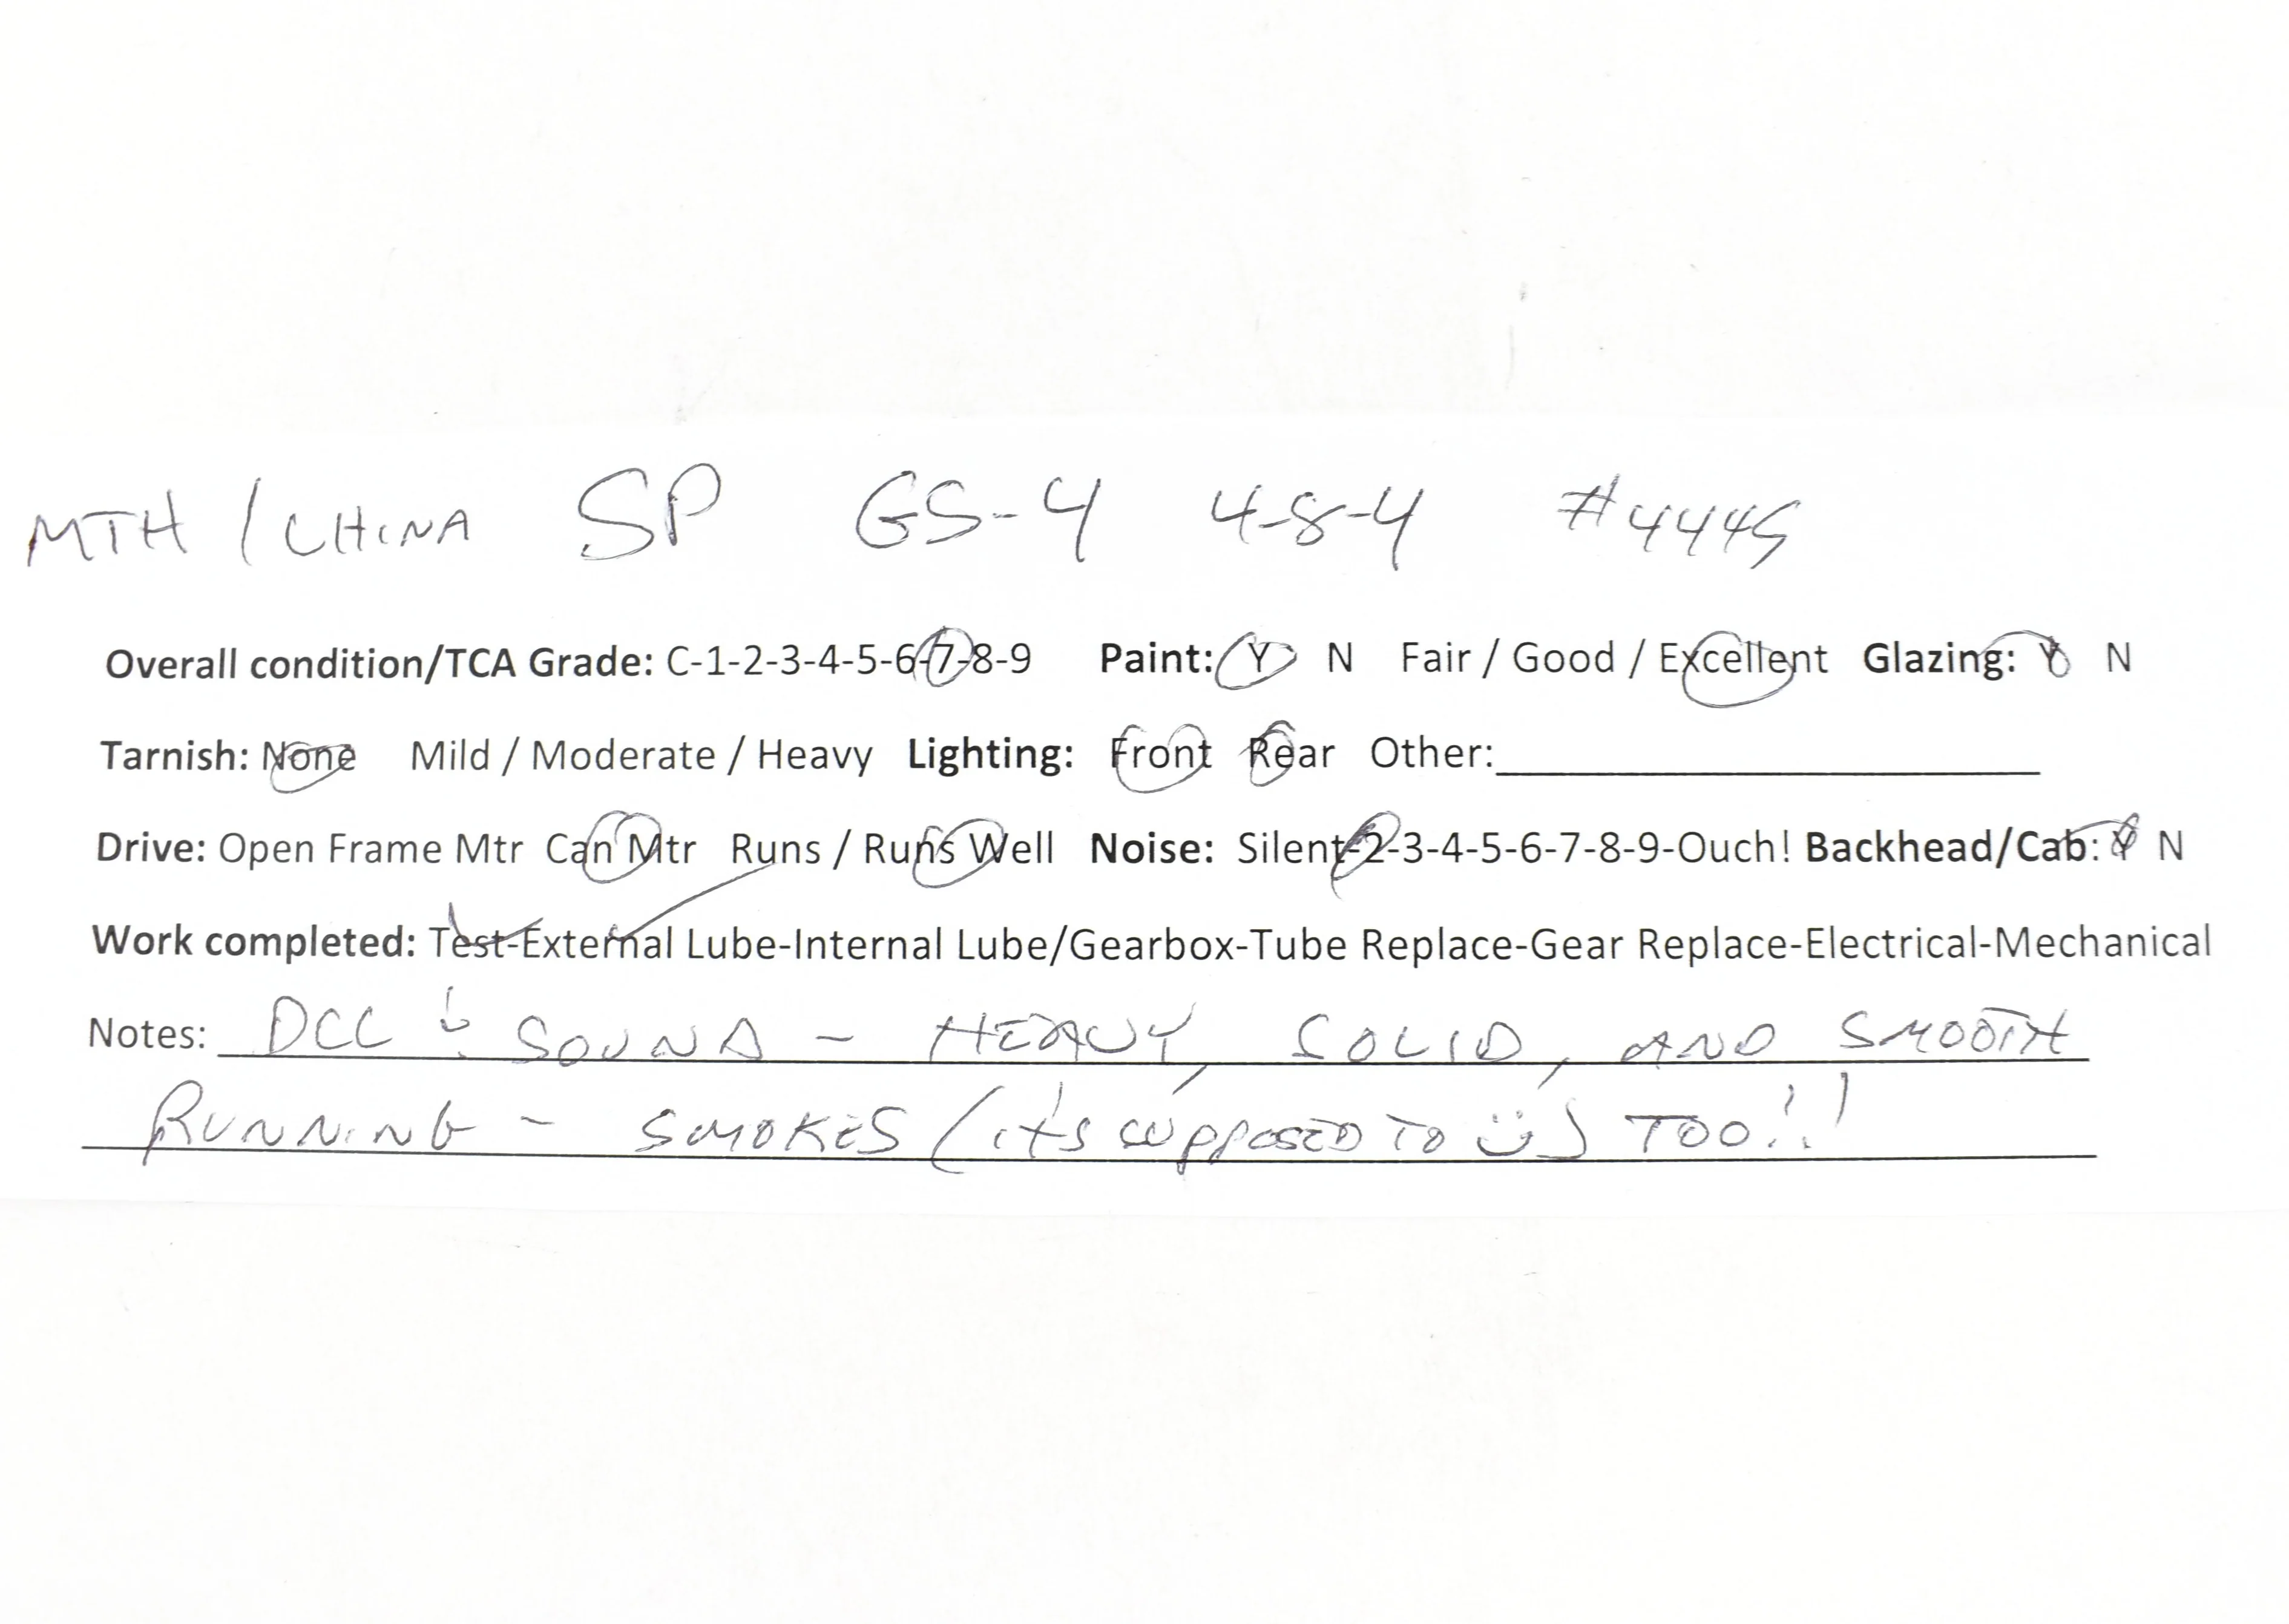 MTH / CHINA SP GS-4 4-8-4 #4445
Overall condition/TCA Grade: C-1-2-3-4-5-6-7-8-9 Paint: Y N Fair / Good / Excellent Glazing: Y N
Tarnish: None Mild / Moderate / Heavy Lighting: Front Rear Other:
Drive: Open Frame Mtr Can Mtr Runs / Runs Well Noise: Silent-2-3-4-5-6-7-8-9-Ouch! Backhead/Cab: Y N
Work completed: Test-External Lube-Internal Lube/Gearbox-Tube Replace-Gear Replace-Electrical-Mechanical
Notes: DCC & SOUND – HEAVY, SOLID, AND SMOOTH
RUNNING – SMOKES (it's supposed to ☺) TOO!!